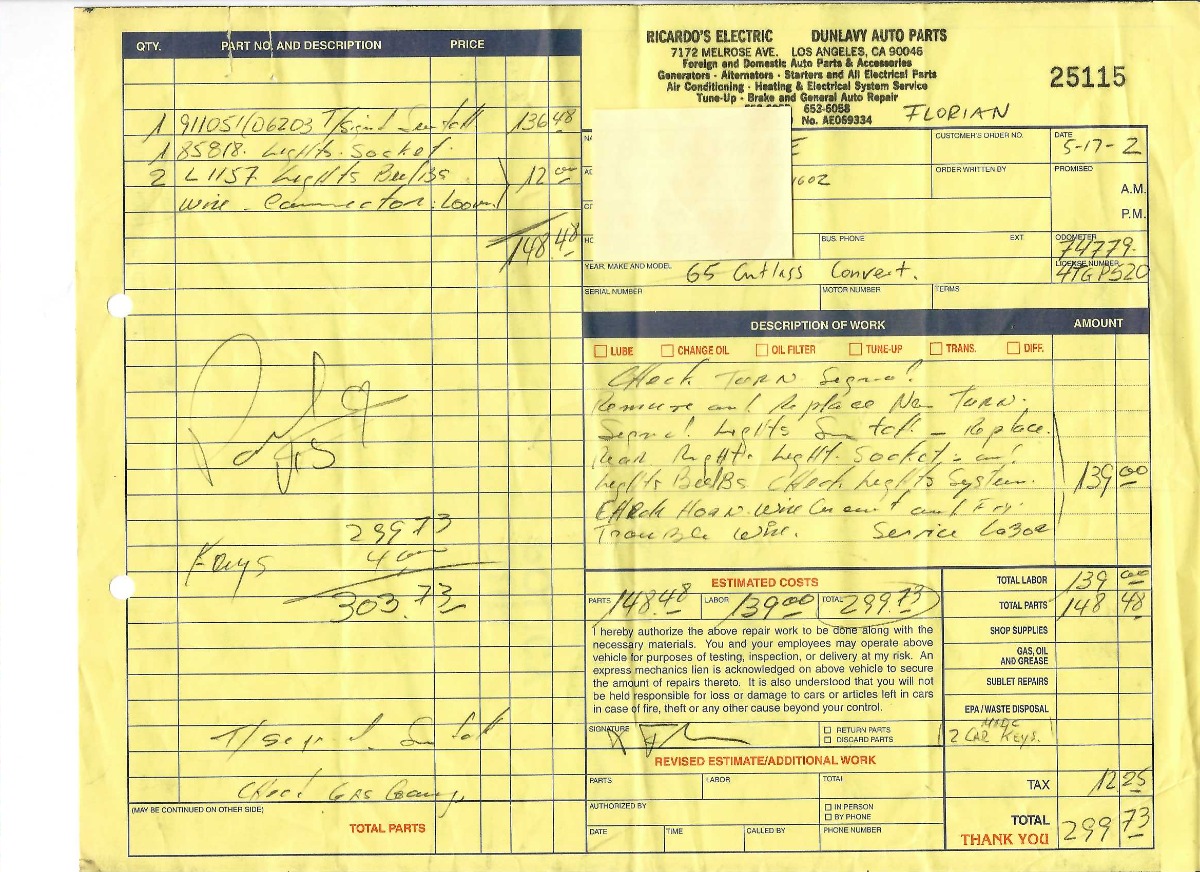 QTY. PART NO. AND DESCRIPTION PRICE
1 911051/D6203 T/signal 136 48
1 85818. Lights. Socket.
2 L1157. Lights Bulbs 12 00
Wire. Connector. Loom
148.48
299.73
Keys 4 00
303.73
T/signal
Check Gas
(MAY BE CONTINUED ON OTHER SIDE)
TOTAL PARTS
RICARDO'S ELECTRIC DUNLAVY AUTO PARTS
7172 MELROSE AVE. LOS ANGELES, CA 90046
Foreign and Domestic Auto Parts & Accessories
Generators - Alternators - Starters and All Electrical Parts
Air Conditioning - Heating & Electrical System Service
Tune-Up - Brake and General Auto Repair
653-6058
No. AE059334
FLORIAN
25115
CUSTOMER'S ORDER NO. DATE
5-17-2
ORDER WRITTEN BY PROMISED
1602
A.M.
P.M.
BUS. PHONE EXT. ODOMETER
74779.
YEAR, MAKE AND MODEL 65 Cutlass Convert. LICENSE NUMBER
4TGP520
SERIAL NUMBER MOTOR NUMBER TERMS
DESCRIPTION OF WORK AMOUNT
LUBE CHANGE OIL OIL FILTER TUNE-UP TRANS. DIFF.
Check Turn Signal
Remove and Replace New Turn.
Signal Lights - Replace.
Rear Right. Light. Socket - and
Lights Bulbs Check Lights System. 139 00
Check Horn. Wire and
Trouble Wire. Service Labor
ESTIMATED COSTS
PARTS 148.48 LABOR 139 00 TOTAL 299.73
I hereby authorize the above repair work to be done along with the
necessary materials. You and your employees may operate above
vehicle for purposes of testing, inspection, or delivery at my risk. An
express mechanics lien is acknowledged on above vehicle to secure
the amount of repairs thereto. It is also understood that you will not
be held responsible for loss or damage to cars or articles left in cars
in case of fire, theft or any other cause beyond your control.
SIGNATURE X
RETURN PARTS
DISCARD PARTS
REVISED ESTIMATE/ADDITIONAL WORK
PARTS LABOR TOTAL
AUTHORIZED BY IN PERSON
BY PHONE
DATE TIME CALLED BY PHONE NUMBER
TOTAL LABOR 139 00
TOTAL PARTS 148 48
SHOP SUPPLIES
GAS, OIL
AND GREASE
SUBLET REPAIRS
EPA / WASTE DISPOSAL
2 CAR KEYS.
TAX 12 25
TOTAL 299 73
THANK YOU